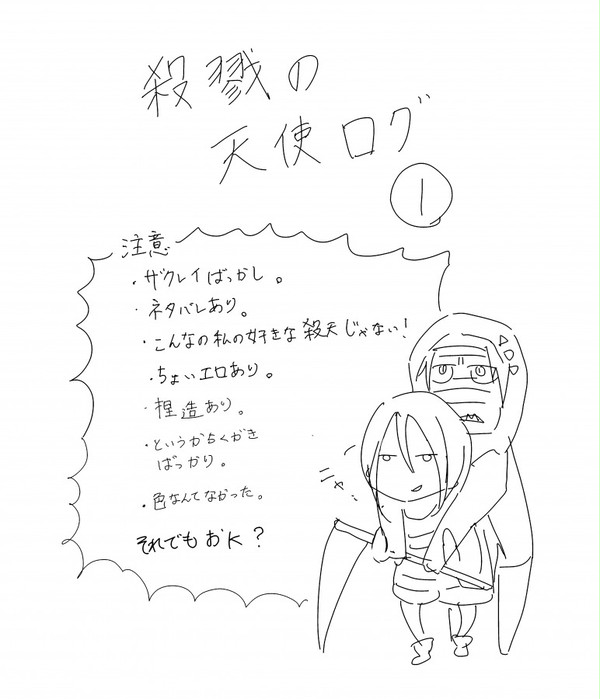 殺戮の
天使ログ
①
注意
・ザクレイばっかし。
・ネタバレあり。
・こんなの私の好きな殺天じゃない!
・ちょいエロあり。
・捏造あり。
・というからくがき
ばっかり。
・色なんてなかった。
それでもおK?
ニャ、